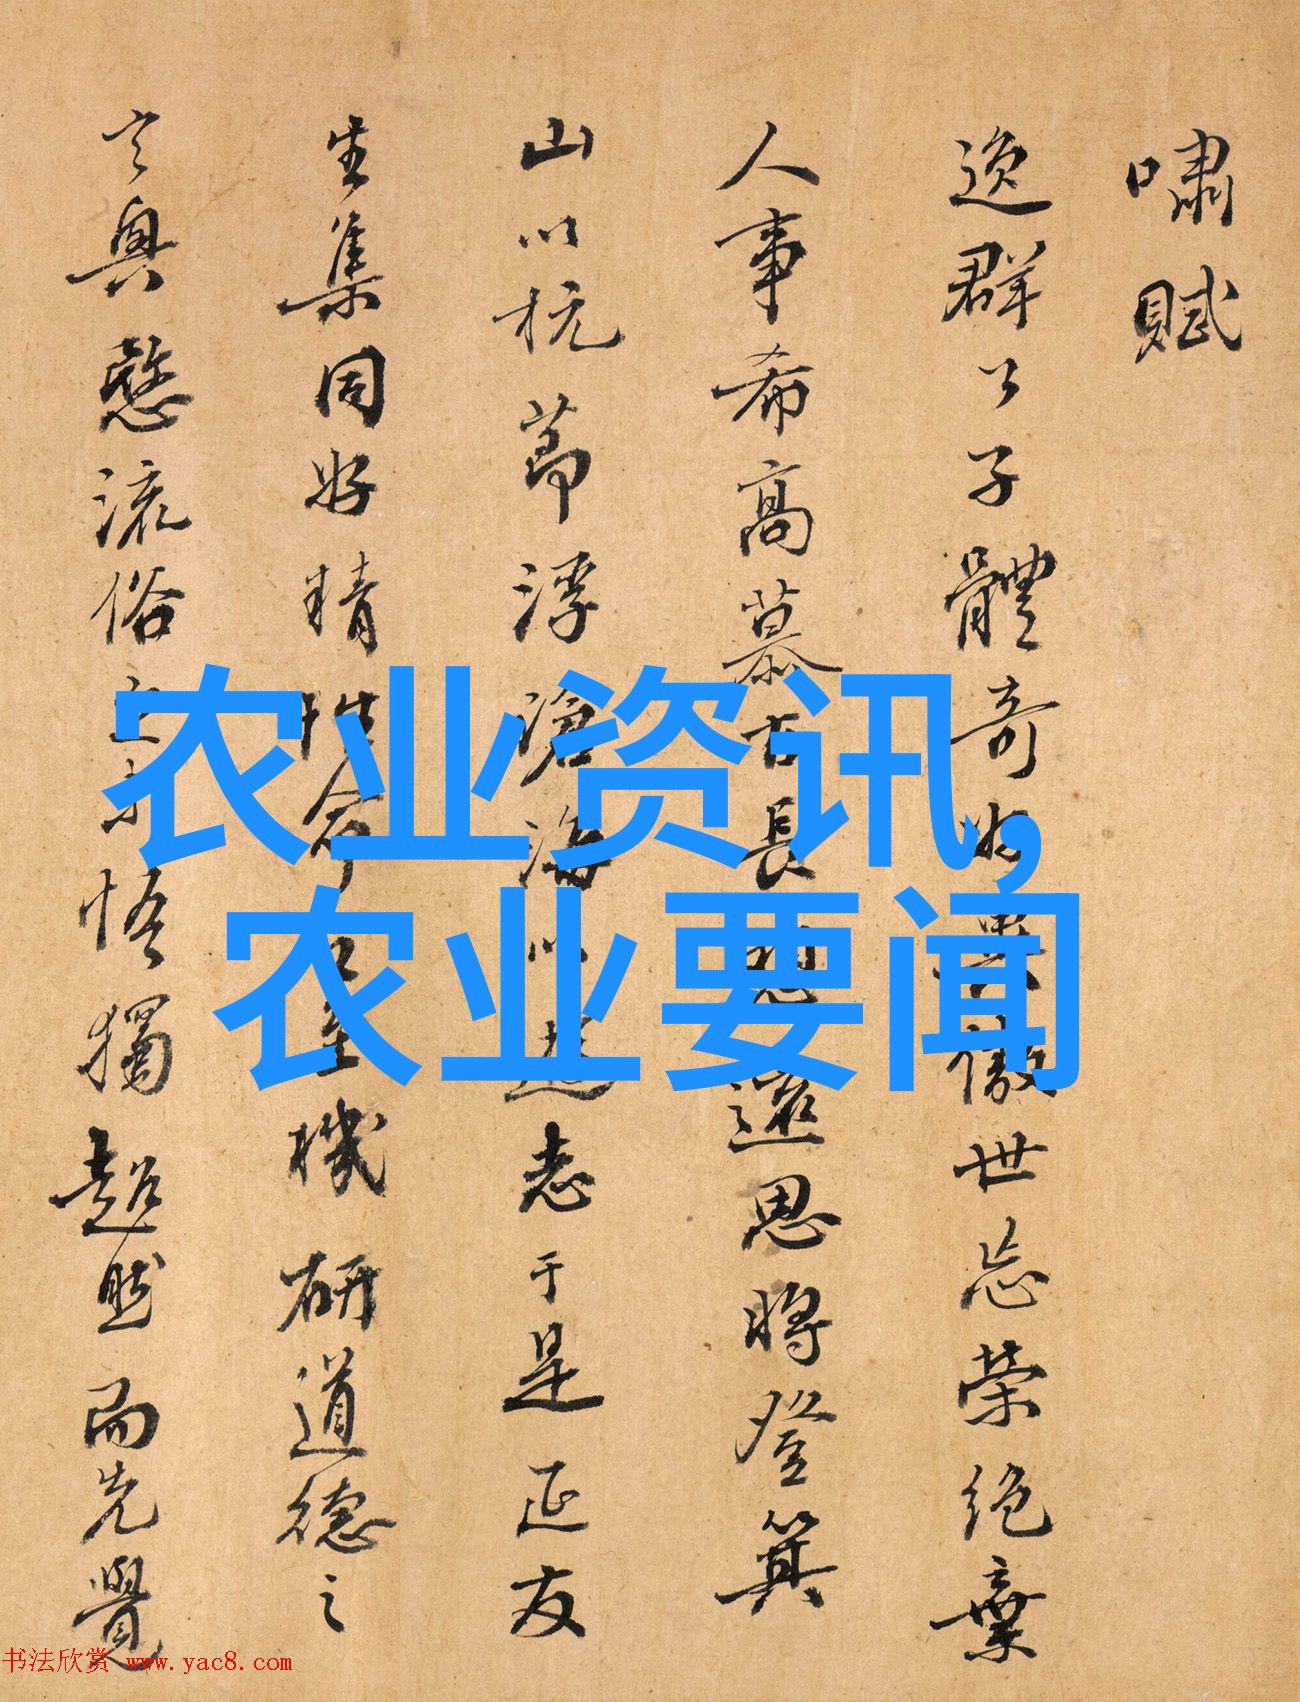 嘯賦
逸群公子體奇好異傲世忘榮絕棄
人事希高慕古長想遠思將登箕
山以抗節浮滄海以游志于是延友
生集同好精性命之至機研道德之
玄奧愍流俗之未悟獨超然而先覺
农业资讯,
农业要闻
书法欣赏 www.yac8.com